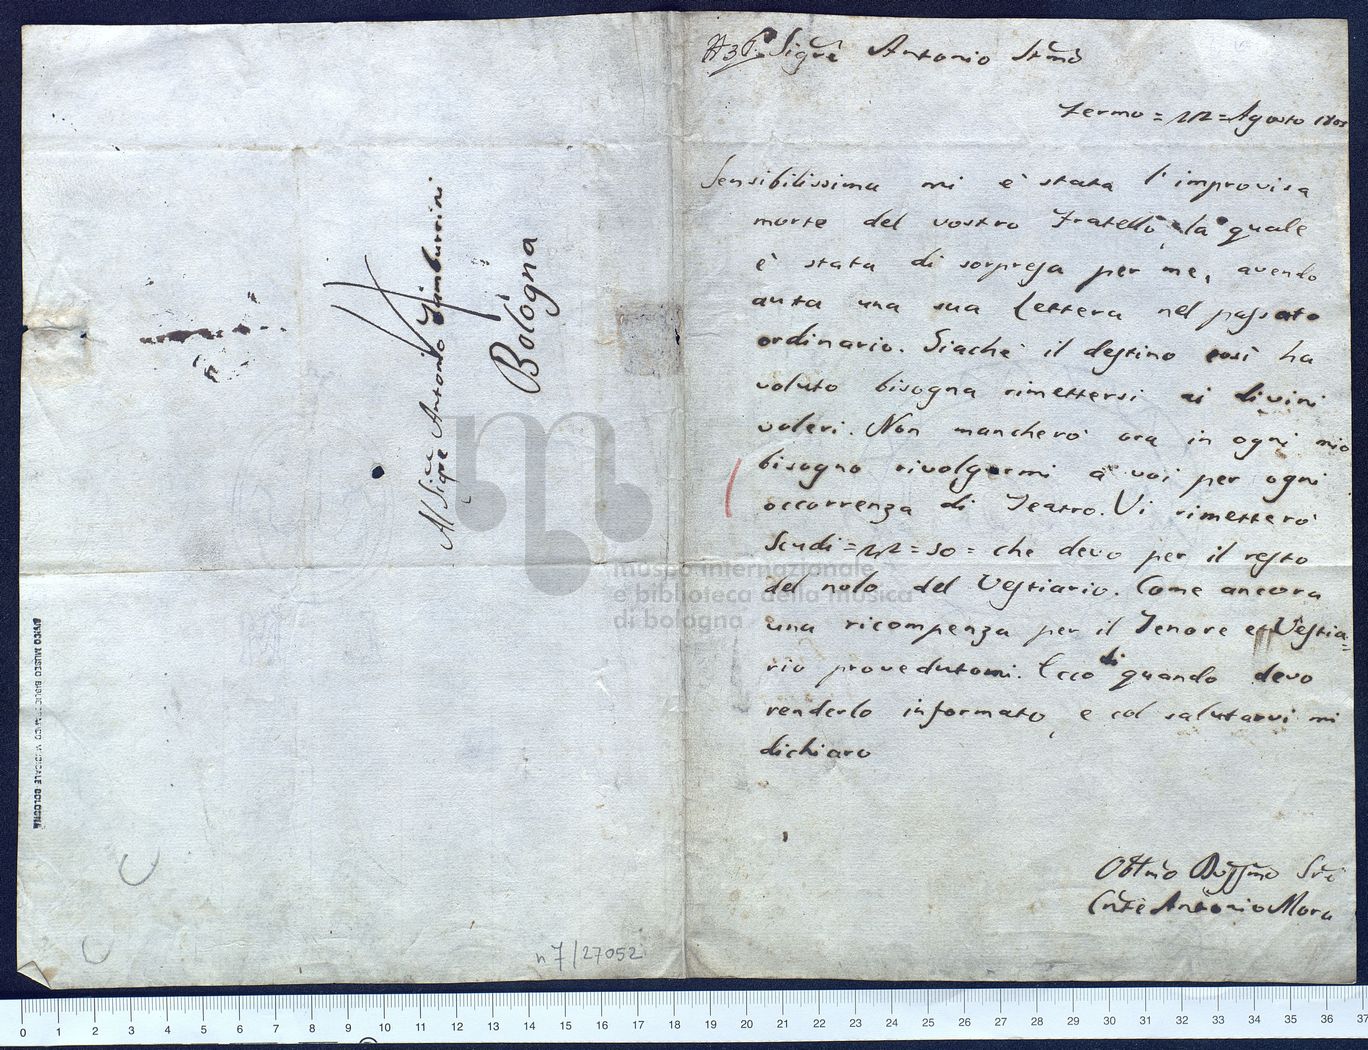 Al Sigre Antonio Tamburini
Bologna
n 7/27052
museo internazionale
e biblioteca della musica
di bologna
Sigre Antonio Stmo
Fermo = 22 = Agosto
Sensibilissima mi è stata l'improvisa
morte del vostro Fratello, la quale
è stata di sorpresa per me, avendo
auta una sua Lettera nel passato
ordinario. Siachè il destino così ha
voluto bisogna rimettersi ai divini
voleri. Non mancherò ora in ogni mio
bisogno rivolgermi a voi per ogni
occorrenza di Teatro. Vi rimetterò
Scudi = = 50 = che devo per il resto
del nolo del Vestiario. Come ancora
una ricompenza per il Tenore e Vestia=
rio provedutomi. Ecco di quando devo
renderlo informato, e col salutarvi mi
dichiaro
Antonio Mora
0 1 2 3 4 5 6 7 8 9 10 11 12 13 14 15 16 17 18 19 20 21 22 23 24 25 26 27 28 29 30 31 32 33 34 35 36 37